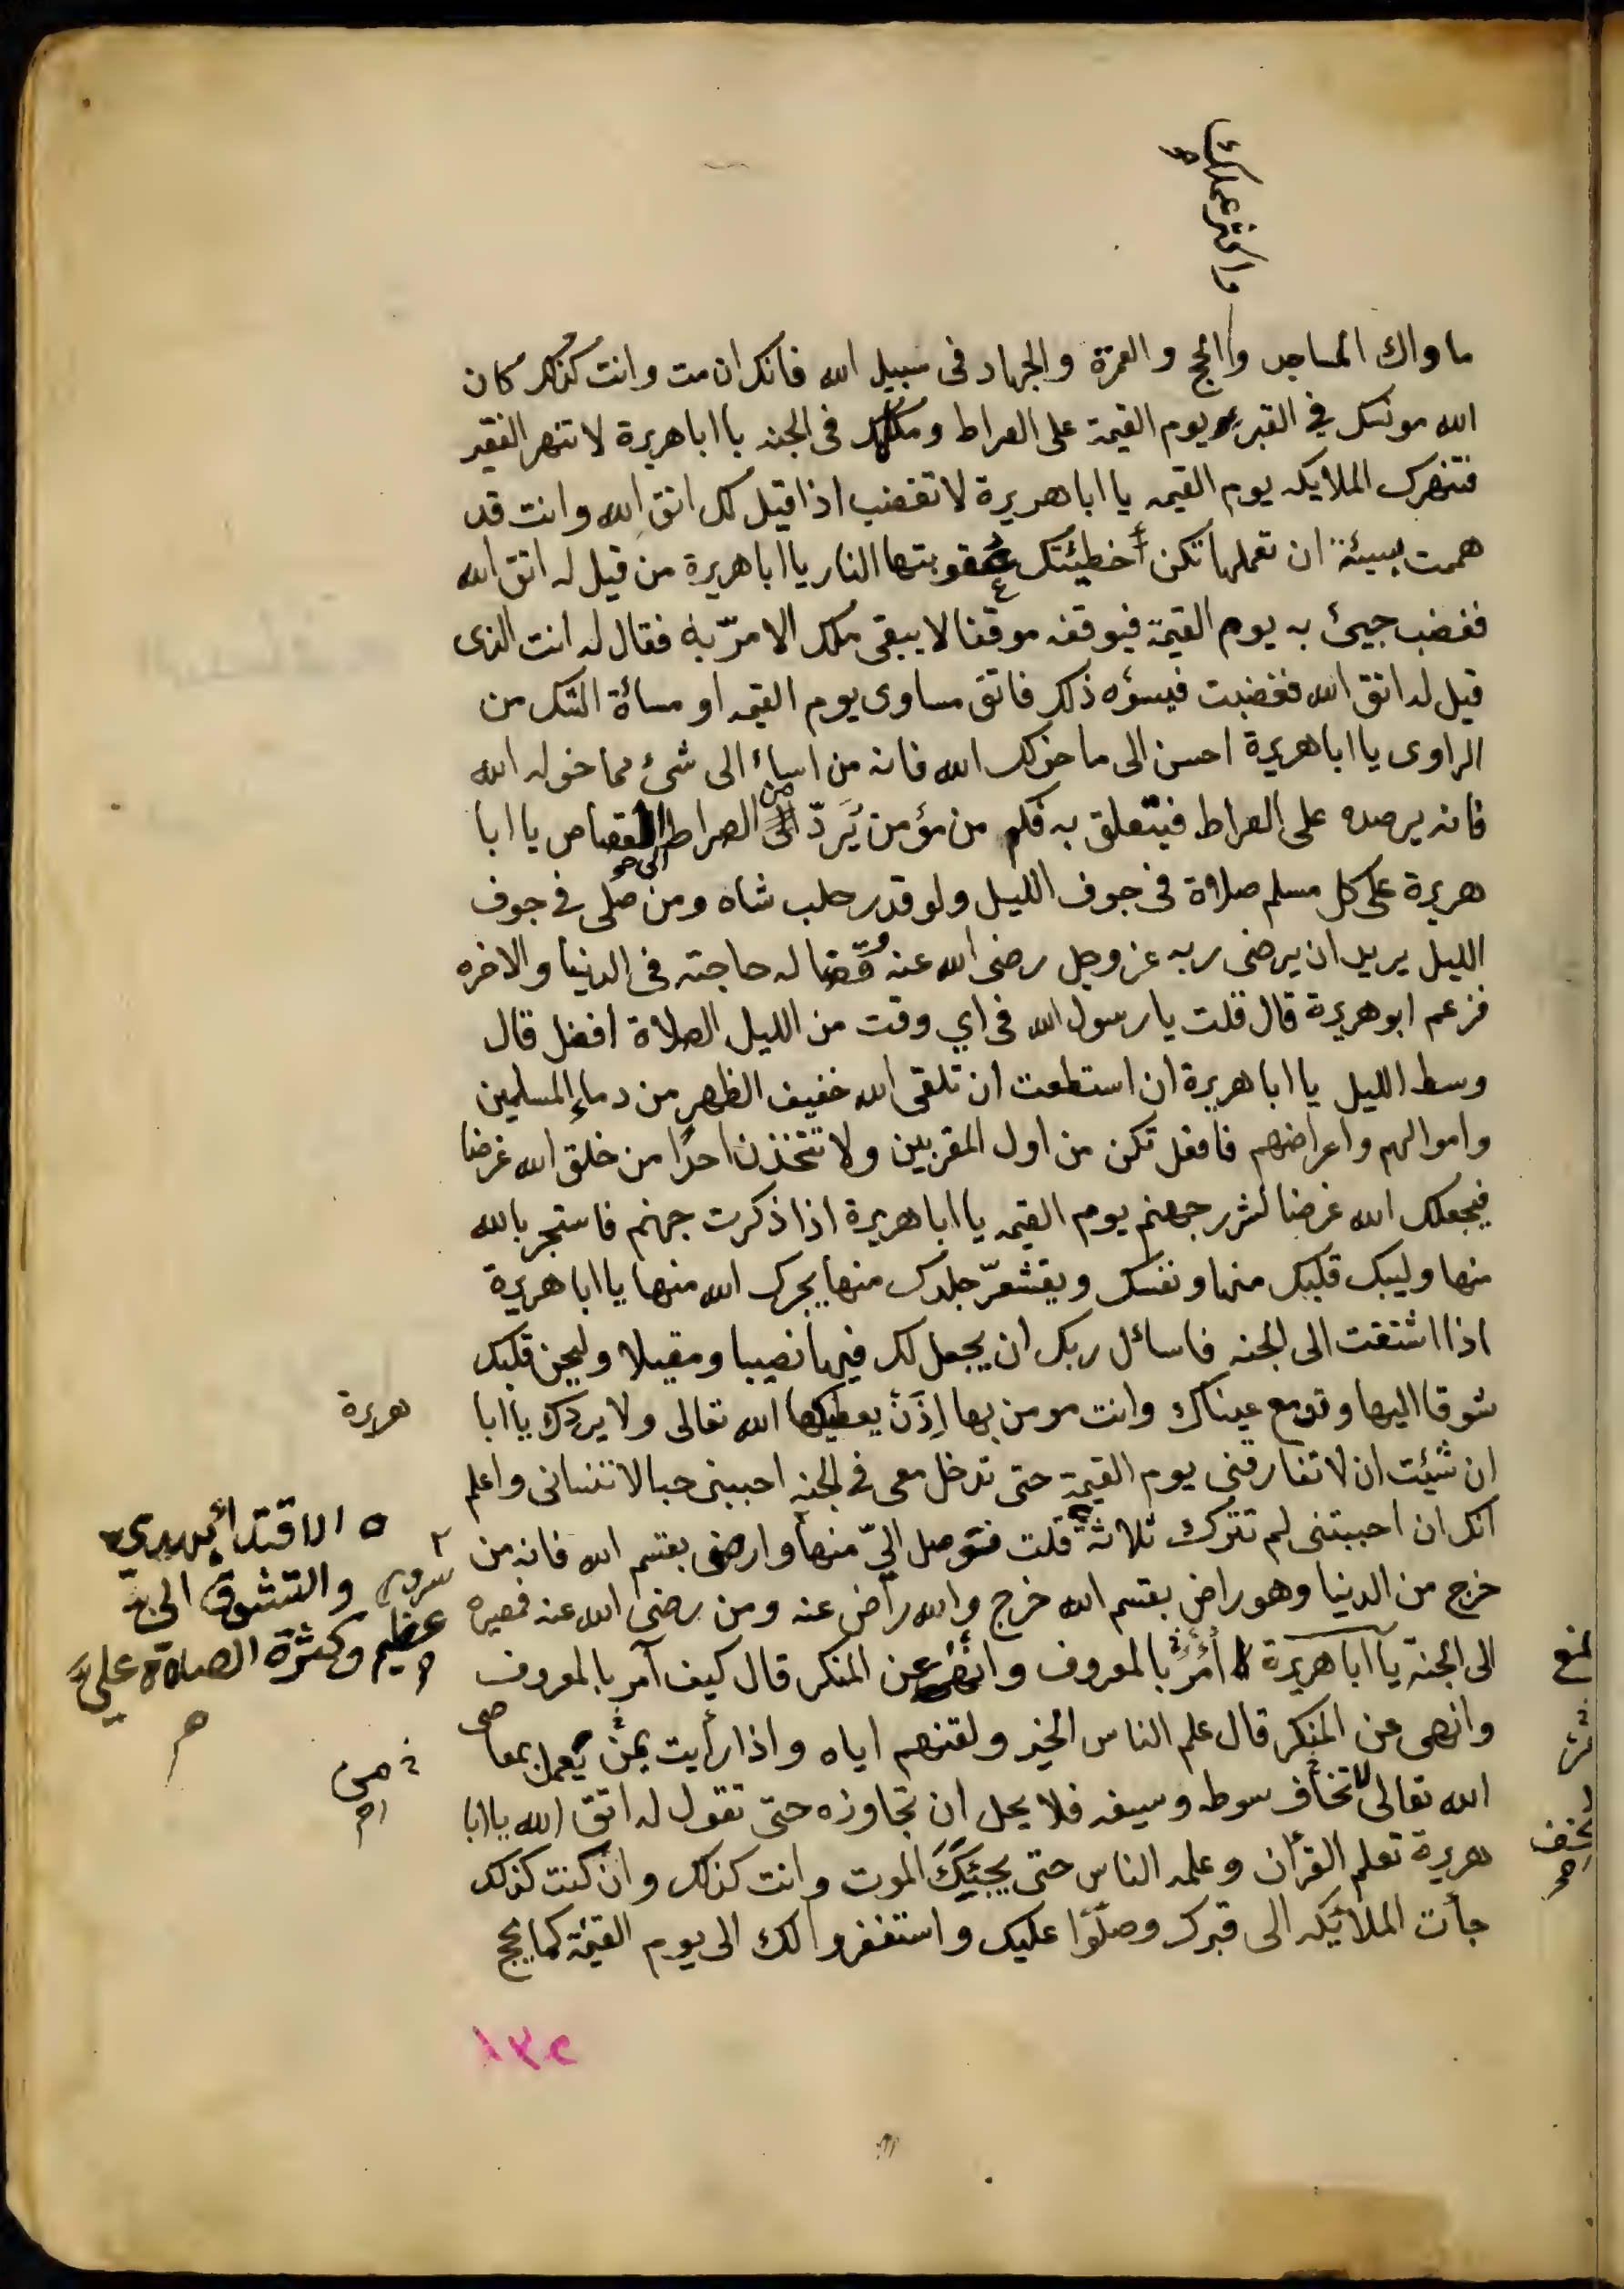 واكثر عملك
ماواك المساجد والحج والعمرة والجهاد فى سبيل الله فانك ان مت وانت كذلك كان
الله مونسك في القبر ويوم القيمة على الصراط ومكلمك فى الجنه يا اباهريرة لا تنهر الفقير
فتنهرك الملايكه يوم القيمه يا اباهريرة لا تغضب اذا قيل لك اتق الله وانت قد
هممت بسيئة ان تعملها تكن أخطيئتك عقوبتها النار يا اباهريرة من قيل له اتق الله
فغضب جيئ به يوم القيمة فيوقف موقفا لا يبقى ملك الا مرّ به فقال له انت الذى
قيل له اتق الله فغضبت فيسؤه ذلك فاتق مساوى يوم القيمه او مسأة الشك من
الراوى يا اباهريرة احسن الى ما خولك الله فانه من اساء الى شئ مما خوله الله
فانه يرصده على الصراط فيتعلق به فكم من مؤمن يَردّ من الصراط الى القصاص يا ابا
هريرة على كل مسلم صلاة فى جوف الليل ولو قدر حلب شاه ومن صلى في جوف
الليل يريد ان يرضى ربه عز وجل رضى الله عنه وقضا له حاجته فى الدنيا والاخره
فزعم ابو هريرة قال قلت يا رسول الله فى اي وقت من الليل الصلاة افضل قال
وسط الليل يا اباهريرة ان استطعت ان تلقى الله خفيف الظهر من دماء المسلمين
واموالهم واعراضهم فافعل تكن من اول المقربين ولا تتخذن احدًا من خلق الله غرضا
فيجعلك الله غرضا لشرر جهنم يوم القيمه يا اباهريرة اذا ذكرت جهنم فاستجر بالله
منها وليبك قلبك منها ونفسك ويقشعرّ جلدك منها يجرك الله منها يا اباهريرة
اذا اشتقت الى الجنه فاسائل ربك ان يجعل لك فيها نصيبا ومقيلا وليحن قلبك
شوقا اليها وتدمع عيناك وانت مومن بها اِذَنْ يعطيكها الله تعالى ولا يردك يا ابا
هريرة
ان شئت ان لا تفارقنى يوم القيمة حتى تدخل معى فى الجنه احببنى حبا لا تنسانى واعلم
انك ان احببتنى لم تترك ثلاثة قلت فتوصل اليّ منها وارضى بقسم الله فانه من
ه الاقتدأ بهديى
سرور والتشوق الى
عظيم وكثرة الصلاة عليَّ
خرج من الدنيا وهو راض بقسم الله خرج والله راض عنه ومن رضى الله عنه فمصيره
الى الجنة يا اباهريرة أمُرْ بالمعروف وانْهَ عن المنكر قال كيف آمر بالمعروف
وانهى عن المنكر قال علم الناس الخير ولقنهم اياه واذا رأيت من يعمل بمعاصى
الله تعالى لا تخاف سوطه وسيفه فلا يحل ان تجاوزه حتى تقول له اتق الله يا ابا
هريرة تعلم القرأن وعلمه الناس حتى يجيئكَ الموت وانت كذلك وان كنت كذلك
جأت الملائيكه الى قبرك وصلّوا عليك واستغفروا لك الى يوم القيمة كما يحج
من
١٣٢